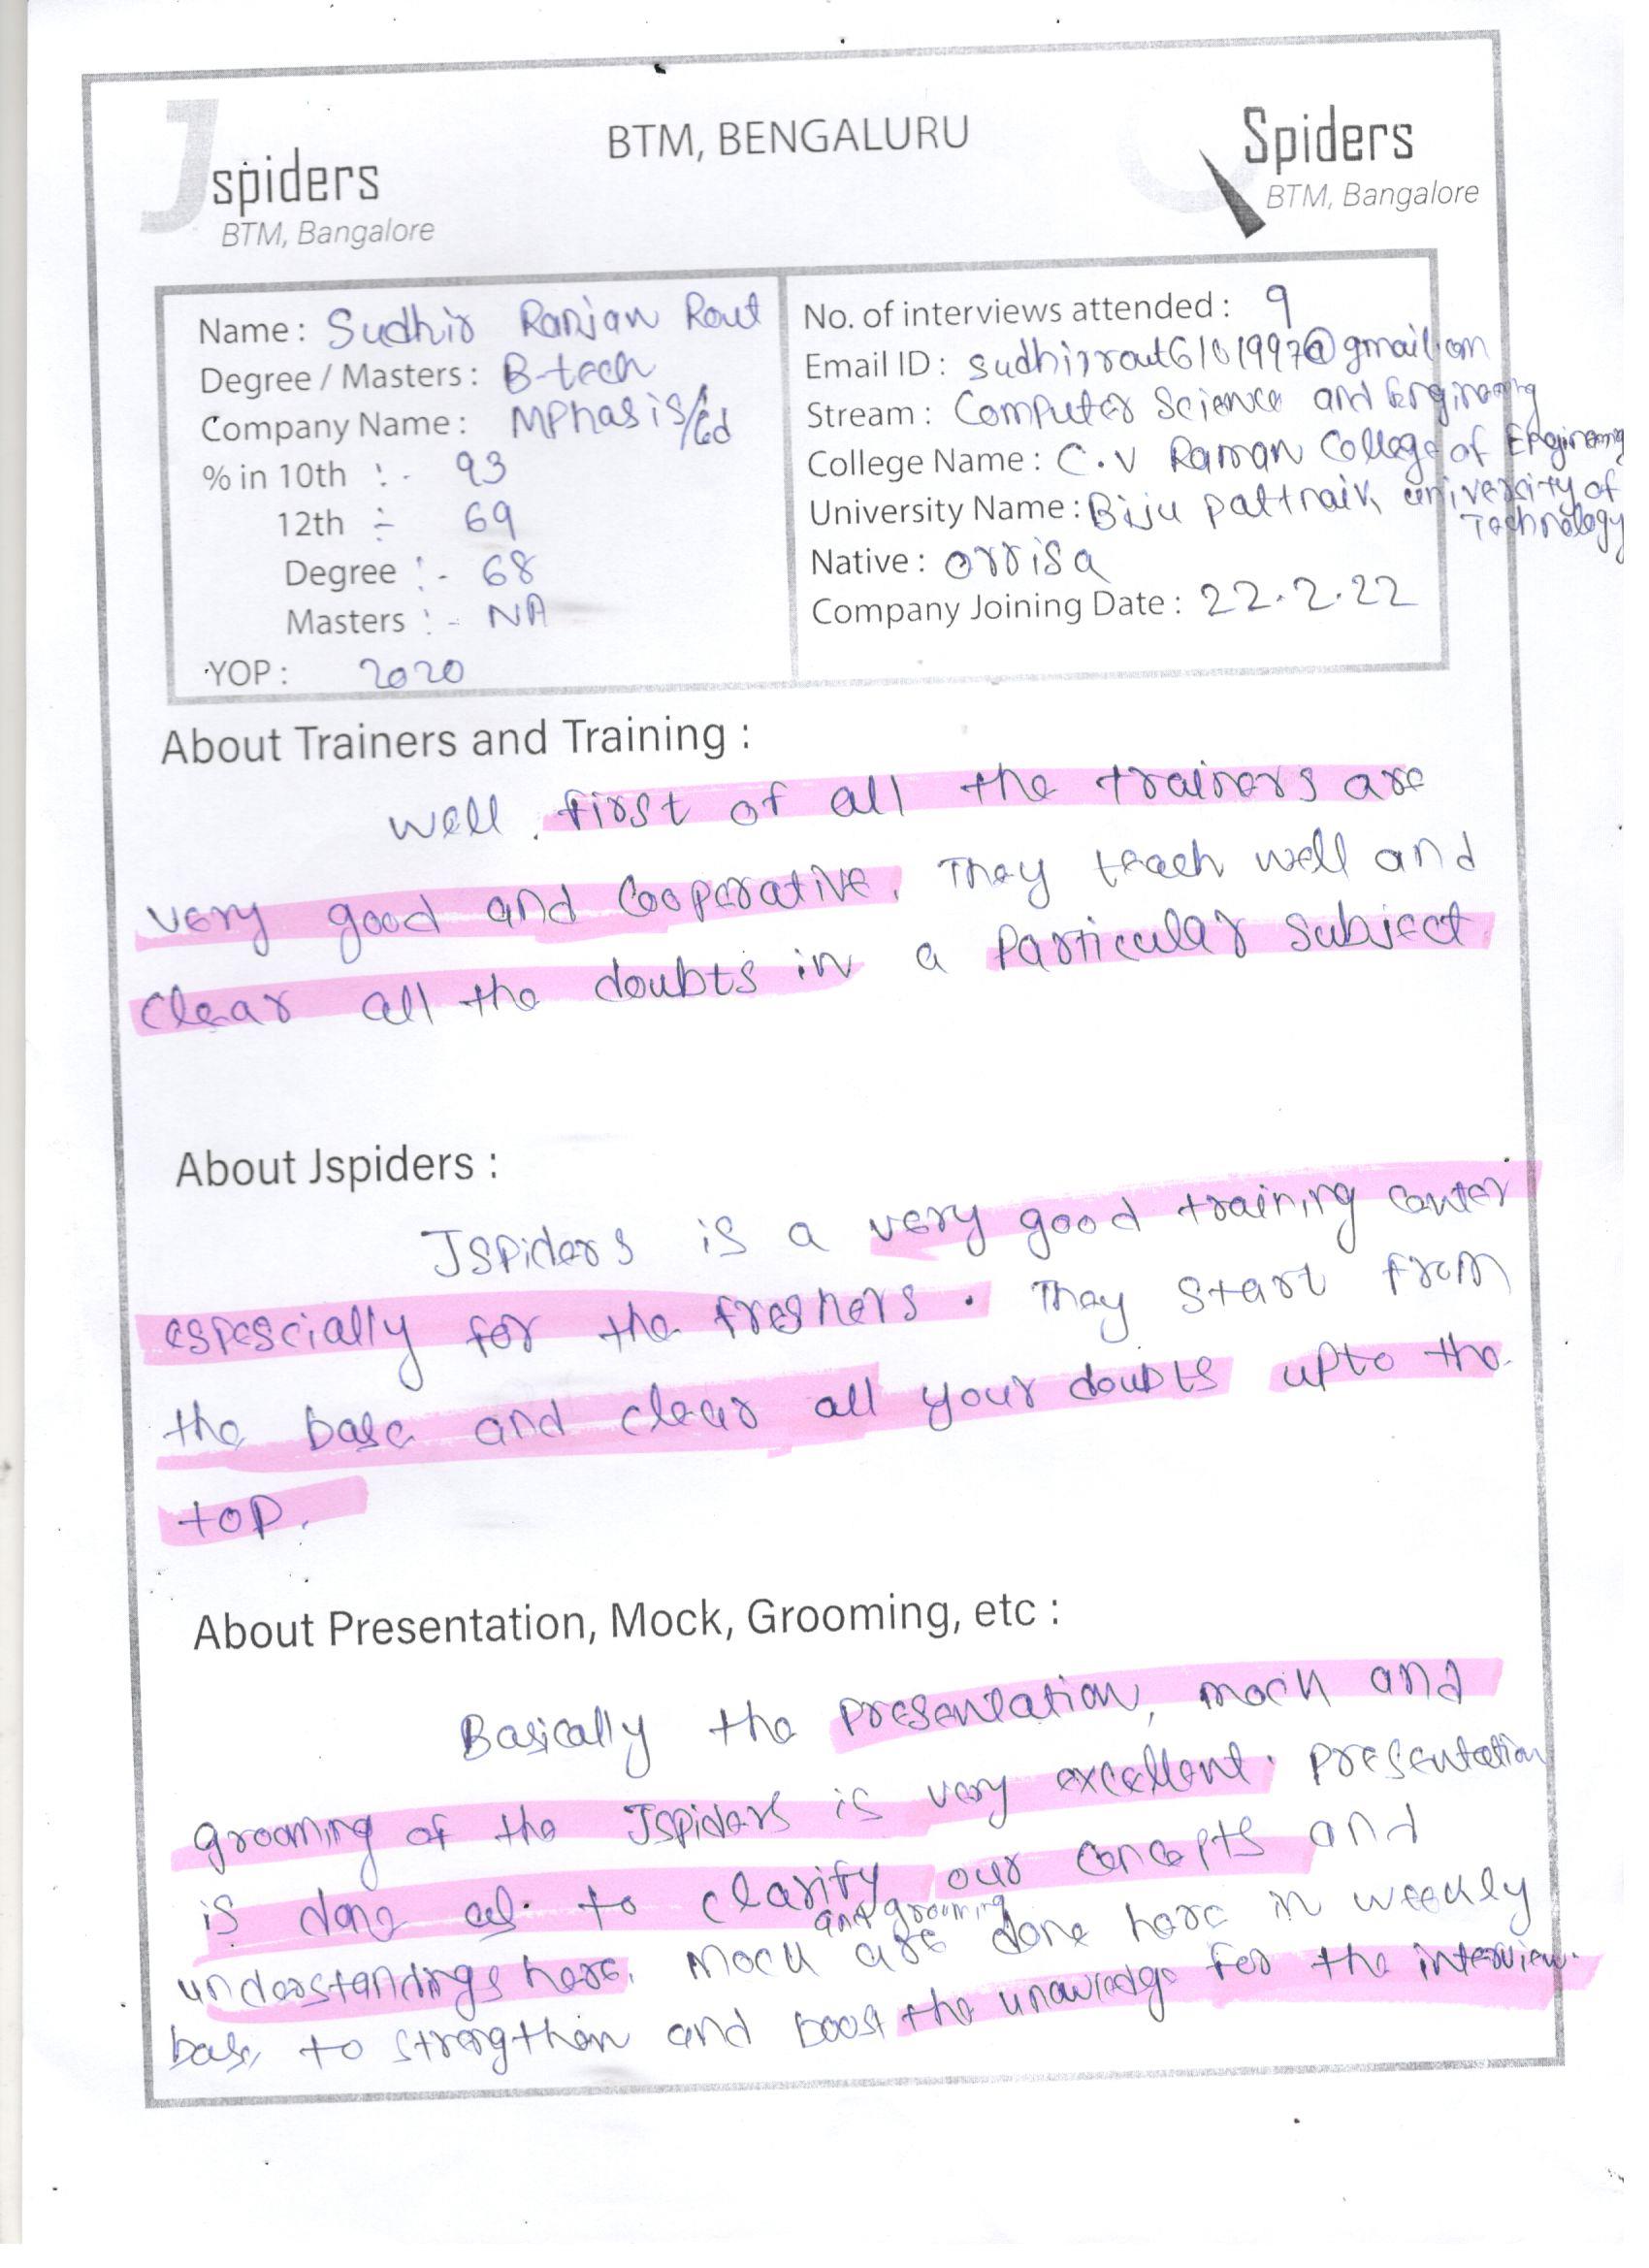 Jspiders
BTM, Bangalore
BTM, BENGALURU
Spiders
BTM, Bangalore
Name : Sudhir Ranjan Rout
Degree / Masters : B-tech
Company Name : MPhasis/
% in 10th :- 93
12th :- 69
Degree :- 68
Masters :- NA
YOP : 2020
No. of interviews attended : 9
Email ID :
Stream : Computer Science and Engineering
College Name : C.V Raman College of Engineering
University Name : Biju pattnaik university of
Technology
Native : orrisa
Company Joining Date : 22.2.22
About Trainers and Training :
Well. first of all the trainers are
very good and Cooperative. They teach well and
clear all the doubts in a Particular Subject
About Jspiders :
JSPiders is a very good training center
espescially for the freshers. They start from
the base and clear all your doubts upto the
top.
About Presentation, Mock, Grooming, etc :
Basically the presentation, mock and
grooming of the Jspiders is very excellent. presentation
is done to clarify our concepts and
and grooming
understandings here. Mock are done here in weekly
basis to strengthen and boost the knowledge for the interview.